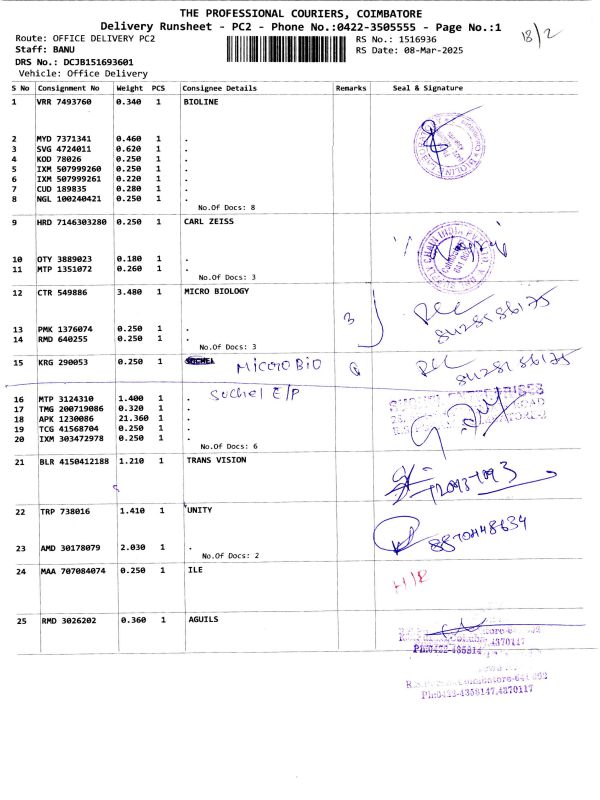 THE PROFESSIONAL COURIERS, COIMBATORE
Delivery Runsheet - PC2 - Phone No.:0422-3505555 - Page No.:1
18/2
Route: OFFICE DELIVERY PC2
RS No.: 1516936
Staff: BANU
RS Date: 08-Mar-2025
DRS No.: DCJB151693601
Vehicle: Office Delivery
S No Consignment No Weight PCS Consignee Details Remarks Seal & Signature
1 VRR 7493760 0.340 1 BIOLINE
2 MYD 7371341 0.460 1 .
3 SVG 4724011 0.620 1 .
4 KOD 78026 0.250 1 .
5 IXM 507999260 0.250 1 .
6 IXM 507999261 0.220 1 .
7 CUD 189835 0.280 1 .
8 NGL 100240421 0.250 1 .
No.Of Docs: 8
9 HRD 7146303280 0.250 1 CARL ZEISS
10 OTY 3889023 0.180 1 .
11 MTP 1351072 0.260 1 .
No.Of Docs: 3
12 CTR 549886 3.480 1 MICRO BIOLOGY
3
13 PMK 1376074 0.250 1 .
14 RMD 640255 0.250 1 .
No.Of Docs: 3
15 KRG 290053 0.250 1 SUCHEL MICROBIO
Suchel E/P
16 MTP 3124310 1.400 1 .
17 TMG 200719086 0.320 1 .
18 APK 1230086 21.360 1 .
19 TCG 41568704 0.250 1 .
20 IXM 303472978 0.250 1 .
No.Of Docs: 6
21 BLR 4150412188 1.210 1 TRANS VISION
22 TRP 738016 1.410 1 UNITY
8870448634
23 AMD 30178079 2.030 1 .
No.Of Docs: 2
24 MAA 707084074 0.250 1 ILE
25 RMD 3026202 0.360 1 AGUILS
Ph:0422-4358147,4370117